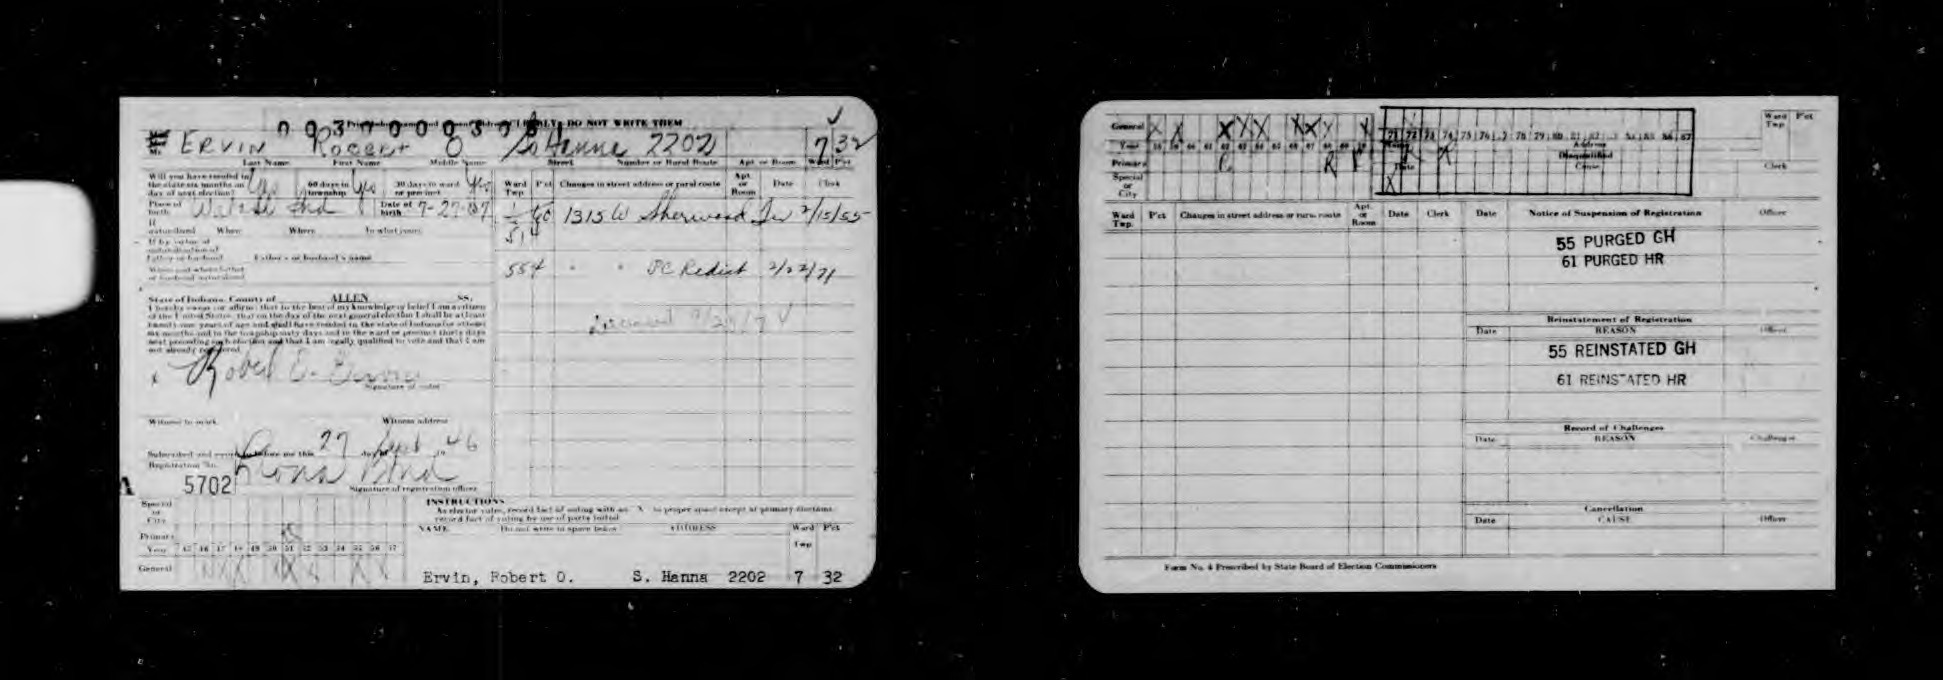 CLEARLY. DO NOT WRITE THEM
ERVIN Robert O So Hanna 2202 7 32
Last Name First Name Middle Name Street Number or Rural Route Apt. or Room Ward P'ct
Will you have resided in
the state six months on
day of next election? Yes 60 days in township Yes 30 days in ward or precinct Yes
Ward Twp P'ct Changes in street address or rural route Apt. or Room Date Clerk
Place of birth Wabash Ind Date of birth 7-27-
1315 W Sherwood Ter 2/15/55
If naturalized When Where In what court
514
If by virtue of
naturalization of
father or husband Father's or husband's name
When and where father
or husband naturalized
554 " " PC Redist 2/22/71
State of Indiana, County of ALLEN SS.
I hereby swear (or affirm) that to the best of my knowledge or belief I am a citizen
of the United States, that on the day of the next general election I shall be at least
twenty-one years of age and shall have resided in the state of Indiana for at least
six months and in the township sixty days and in the ward or precinct thirty days
next preceding such election and that I am legally qualified to vote and that I am
not already registered.
x Robert O. Ervin
Signature of voter
Witness to mark Witness address
Subscribed and sworn to before me this 27 day of Sept 46
Registration No.
A 5702
Signature of registration officer
Special or City
Primary
Year 45 46 47 48 49 50 51 52 53 54 55 56 57
General
INSTRUCTIONS
As elector votes, record fact of voting with an "X" in proper space except at primary elections
record fact of voting by use of party initial
NAME Do not write in space below ADDRESS Ward Twp P'ct
Ervin, Robert O. S. Hanna 2202 7 32
General X X X X X X X X
Year 58 59 60 61 62 63 64 65 66 67 68 69 70 71 72 73 74 75 76 77 78 79 80 81 82 83 84 85 86 87
Primary R
Special or City X
Address
Disqualified
Date Cause
Ward Twp P'ct
Clerk
Ward Twp. P'ct Changes in street address or rural route Apt. or Room Date Clerk Date Notice of Suspension of Registration Officer
55 PURGED GH
61 PURGED HR
Reinstatement of Registration
Date REASON Officer
55 REINSTATED GH
61 REINSTATED HR
Record of Challenges
Date REASON Challenger
Cancellation
Date CAUSE Officer
Form No. 4 Prescribed by State Board of Election Commissioners